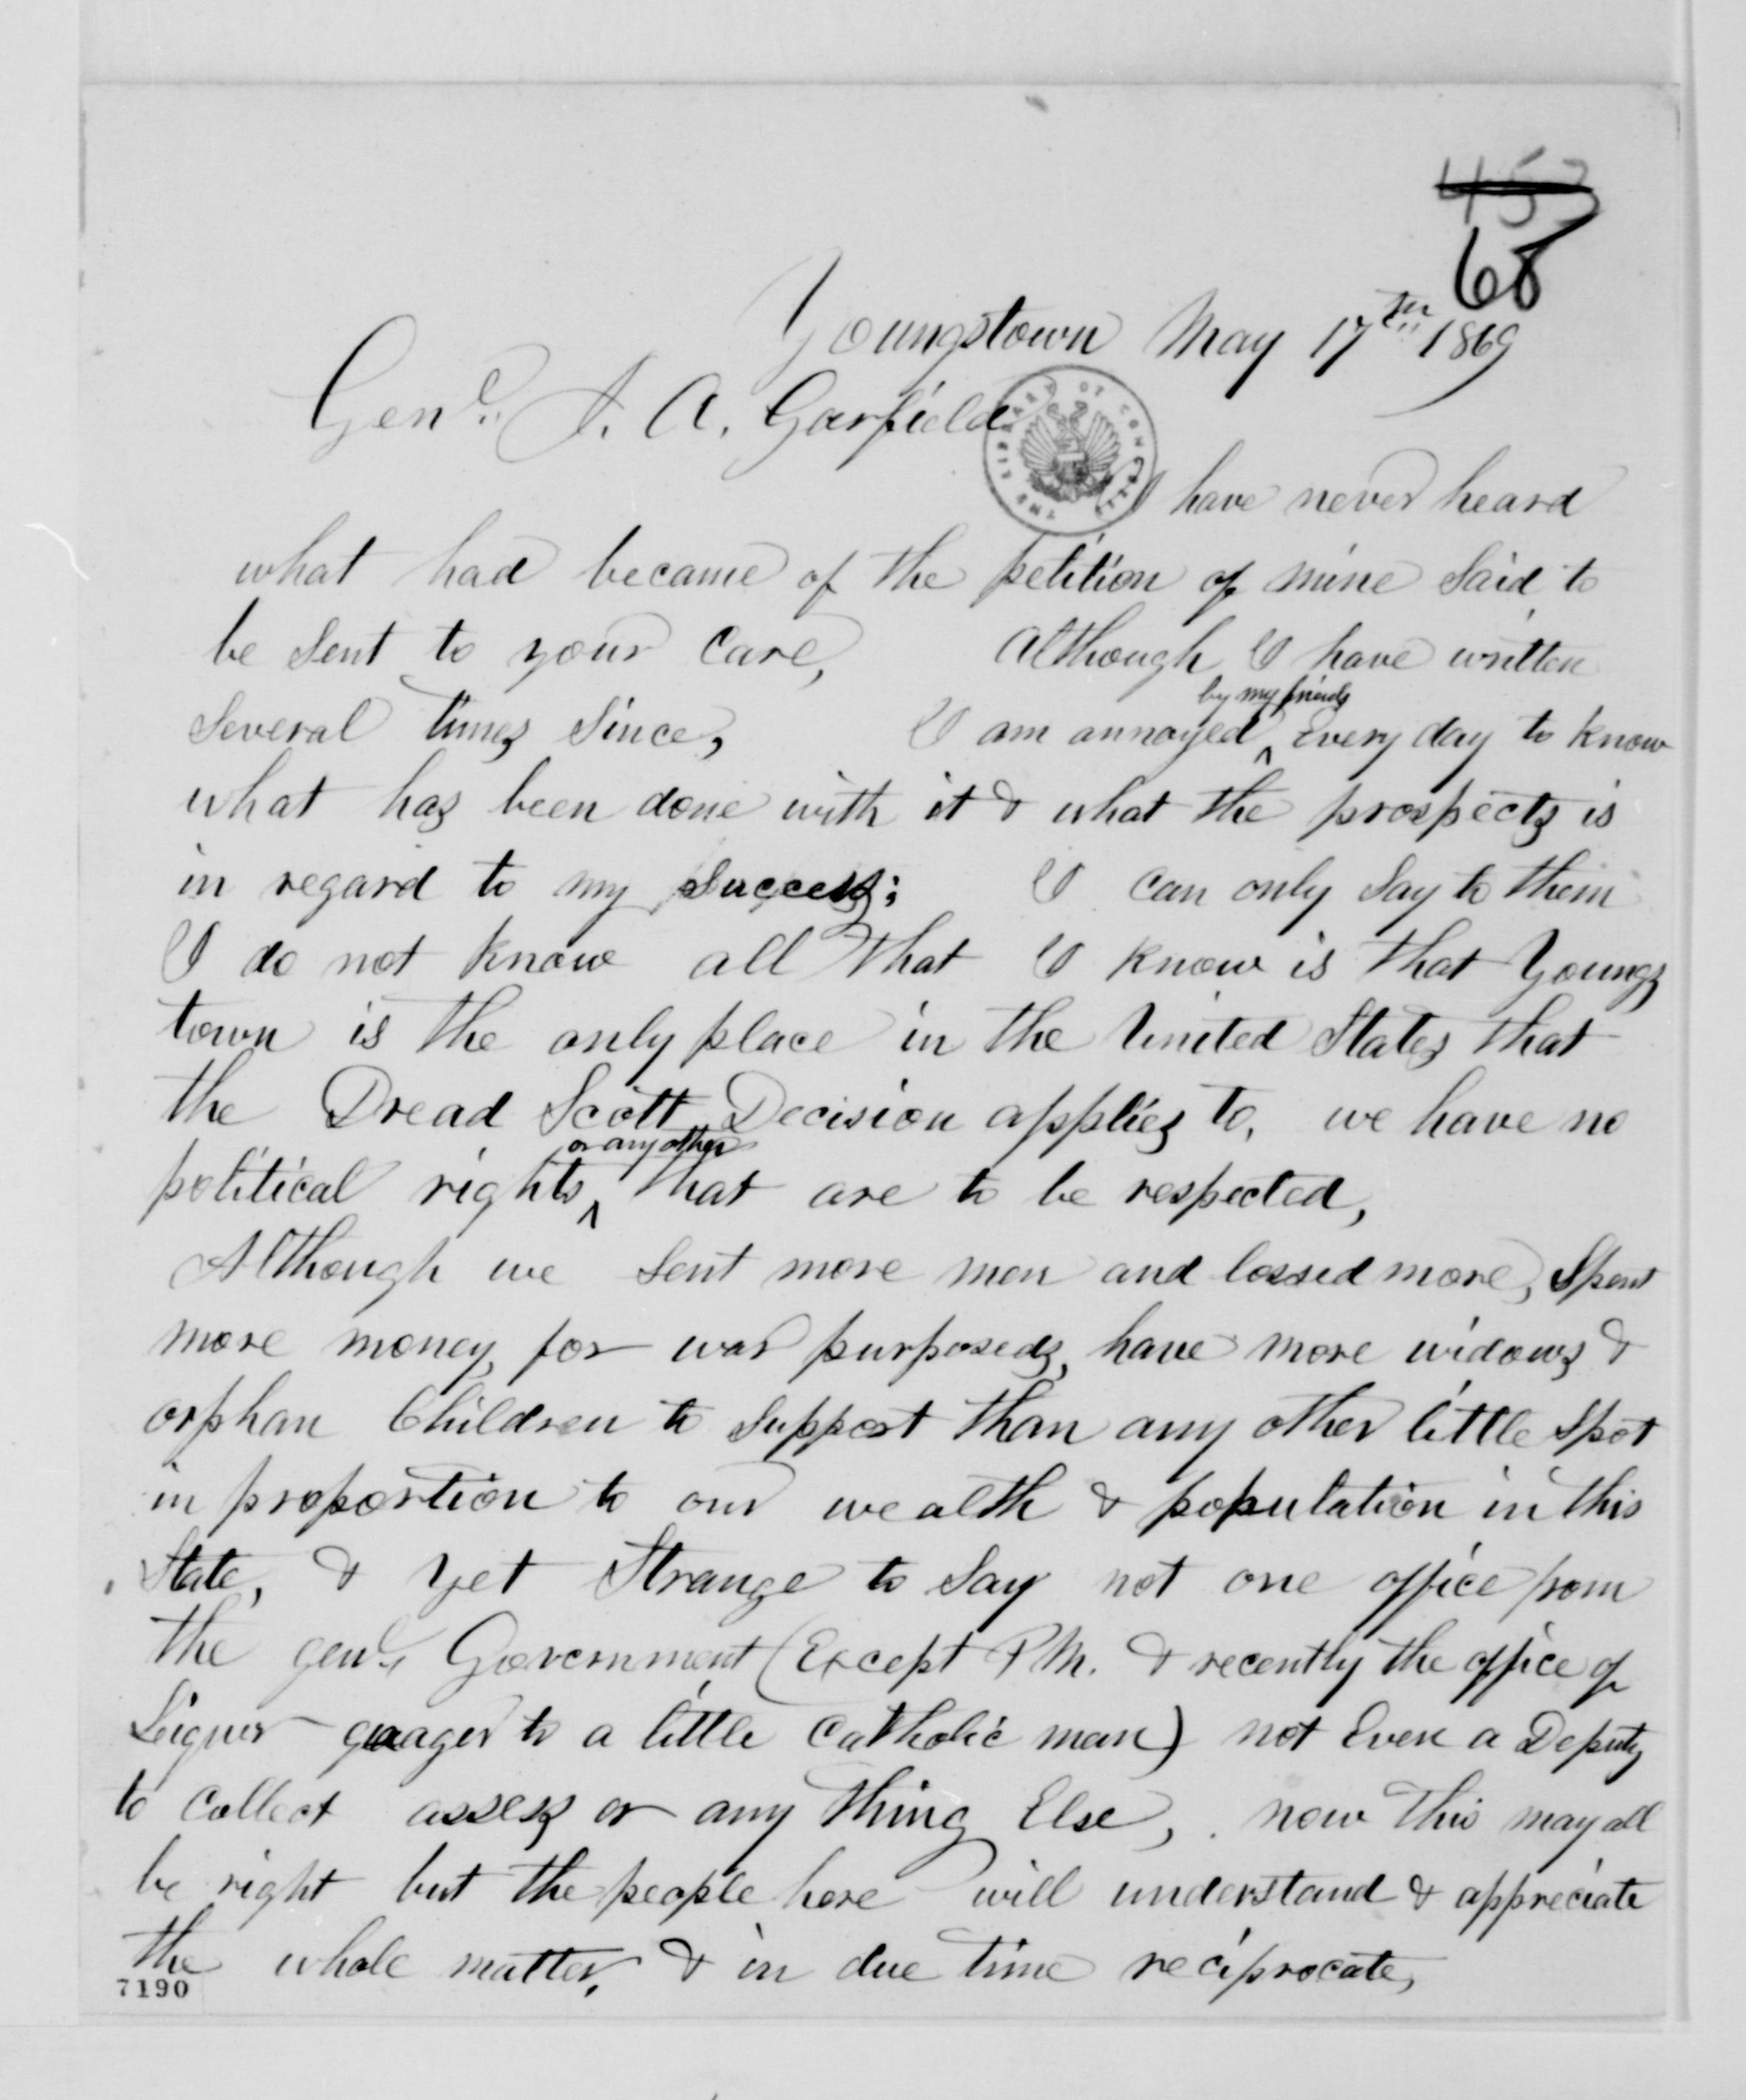 453
68
Youngstown May 17th 1869
Genl. J. A. Garfield
THE LIBRARY OF CONGRESS
I have never heard
what had became of the petition of mine said to
be sent to your care, Although I have written
by my friends
several times since, I am annoyed ^ Every day to know
what has been done with it & what the prospects is
in regard to my success; I can only say to them
I do not know all that I know is that Youngs
town is the only place in the United States that
the Dread Scott Decision applies to, we have no
or any other
political rights ^ that are to be respected,
Although we sent more men and lossed more, spent
more money for war purposeds, have more widows &
orphan Children to support than any other little spot
in proportion to our wealth & population in this
State, & yet strange to say not one office from
the genl. Government (Except P M. & recently the office of
Liquer guager to a little catholic man) not Even a Deputy
to collect assess or any thing Else, now this may all
be right but the people here will understand & appreciate
the whole matter, & in due time reciprocate,
7190